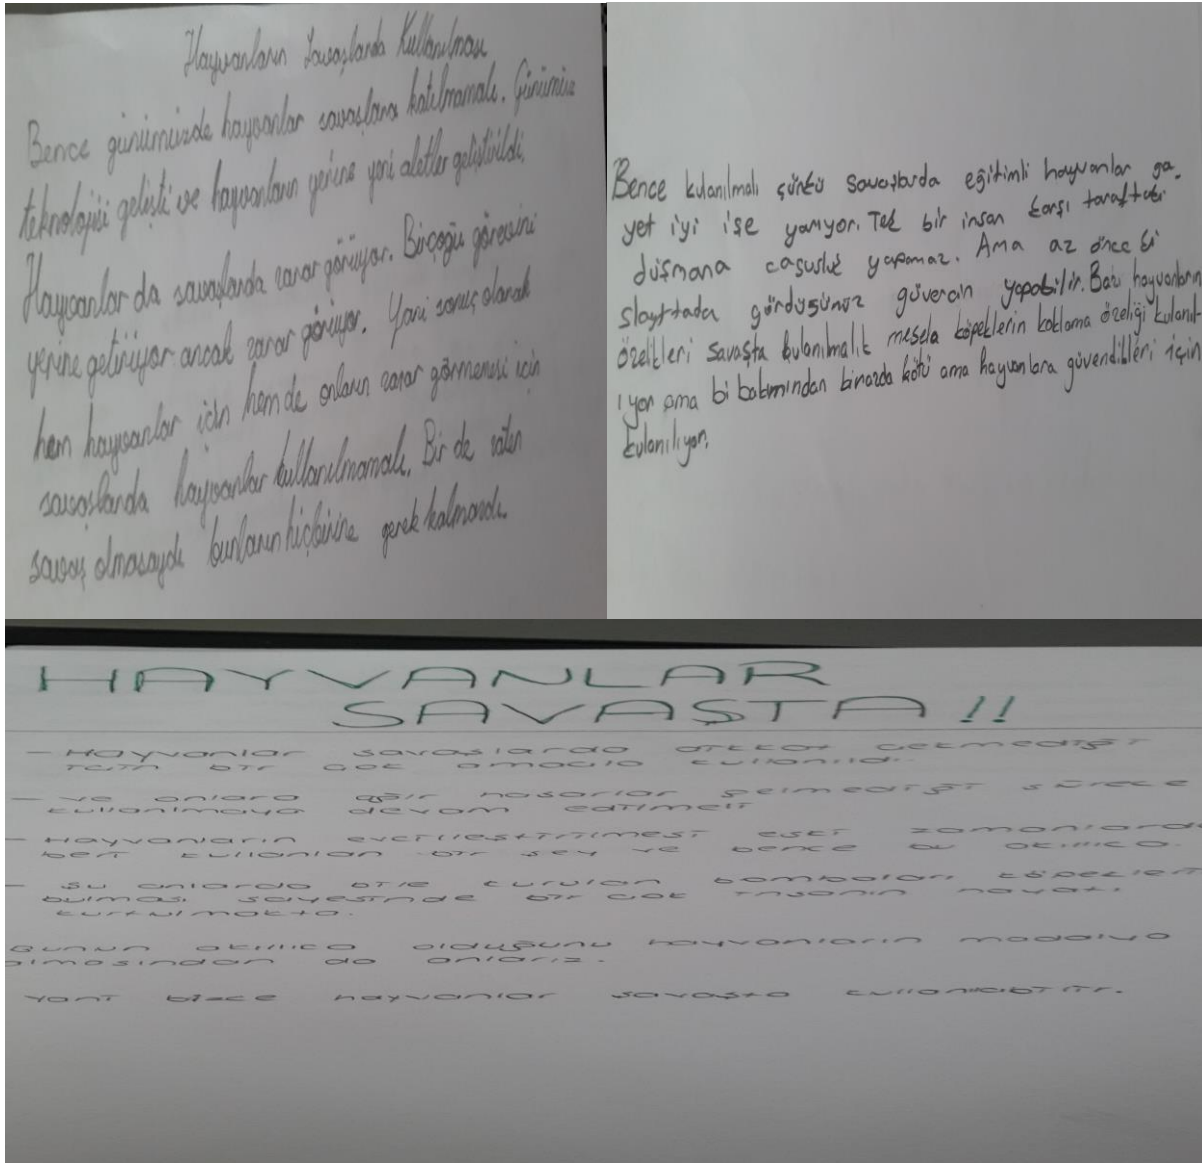 Hayvanların Savaşlarda Kullanılması
Bence günümüzde hayvanlar savaşlara katılmamalı. Günümüz
teknolojisi gelişti ve hayvanların yerine yeni aletler geliştirildi.
Hayvanlar da savaşlarda zarar görüyor. Birçoğu görevini
yerine getiriyor ancak zarar görüyor. Yani sonuç olarak
hem hayvanlar için hem de onların zarar görmemesi için
savaşlarda hayvanlar kullanılmamalı. Bir de zaten
savaş olmasaydı bunların hiçbirine gerek kalmazdı.
Bence kulanılmalı çünkü savaşlarda eğitimli hayvanlar ga-
yet iyi işe yarıyor. Tek bir insan karşı taraftaki
düşmana casusluk yapamaz. Ama az önce ki
slayttada gördüğünüz güvercin yapabilir. Bazı hayvanların
özelikleri savaşta kulanılmalık mesela köpeklerin koklama özeliği kulanıl-
ıyor ama bi bakımından birazda kötü ama hayvanlara güvendikleri için
kulanılıyor.
HAYVANLAR
SAVAŞTA!!
- Hayvanlar savaşlarda dikkat çekmediği
için bir çok amaçla kullanıldı.
- Ve onlara ağır hasarlar gelmediği sürece
kullanılmaya devam edilmeli
- Hayvanların evcilleştirilmesi eski zamanlarda
beri kullanılan bir şey ve bence bu akıllıca.
- Şu anlarda bile kurulan bombaları köpekleri
bulması sayesinde bir çok insanın hayatı
kurtulmakta.
Bunun akıllıca olduğunu hayvanların madalya
almasından da anlarız.
Yani bizce hayvanlar savaşta kullanılabilir.